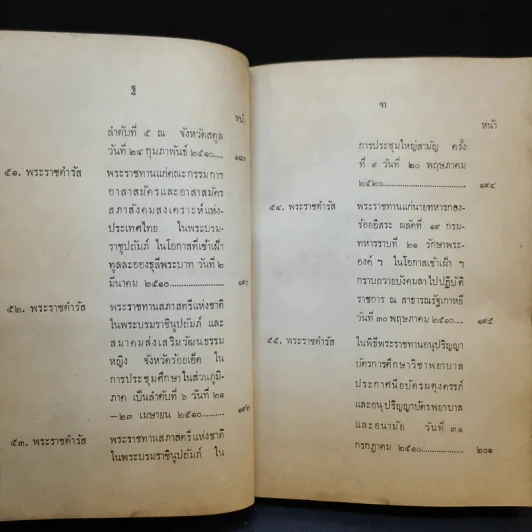 ฐ
หน้า
ลำดับที่ ๕ ณ จังหวัดสตูล
วันที่ ๒๔ กุมภาพันธ์ ๒๕๑๐.... ๑๘๓
๕๑. พระราชดำรัส พระราชทานแก่คณะกรรมการ
อาสาสมัครและอาสาสมัคร
สภาสังคมสงเคราะห์แห่ง-
ประเทศไทย ในพระบรม-
ราชูปถัมภ์ ในโอกาสที่เข้าเฝ้า
ทูลละอองธุลีพระบาท วันที่ ๒
มีนาคม ๒๕๑๐.................. ๑๙๐
๕๒. พระราชดำรัส พระราชทานสภาสตรีแห่งชาติ
ในพระบรมราชินูปถัมภ์ และ
สมาคมส่งเสริมวัฒนธรรม
หญิง จังหวัดร้อยเอ็ด ใน
การประชุมศึกษาในส่วนภูมิ-
ภาค เป็นลำดับที่ ๖ วันที่ ๒๑
–๒๓ เมษายน ๒๕๑๐......... ๑๙๒
๕๓. พระราชดำรัส พระราชทานสภาสตรีแห่งชาติ
ในพระบรมราชินูปถัมภ์ ใน
หน้า
การประชุมใหญ่สามัญ ครั้ง
ที่ ๙ วันที่ ๒๐ พฤษภาคม
๒๕๒๐............................ ๑๙๔
๕๔. พระราชดำรัส พระราชทานแก่นายทหารกอง-
ร้อยอิสระ ผลัดที่ ๑๙ กรม-
ทหารราบที่ ๒๑ รักษาพระ-
องค์ ฯ ในโอกาสเข้าเฝ้า ฯ
กราบถวายบังคมลาไปปฏิบัติ
ราชการ ณ สาธารณรัฐเกาหลี
วันที่ ๓๐ พฤษภาคม ๒๕๑๐.... ๑๙๕
๕๕. พระราชดำรัส ในพิธีพระราชทานอนุปริญญา
บัตรการศึกษาวิชาพยาบาล
ประกาศนียบัตรผดุงครรภ์
และอนุปริญญาบัตรพยาบาล
และอนามัย วันที่ ๓๑
กรกฎาคม ๒๕๑๐............... ๒๐๑